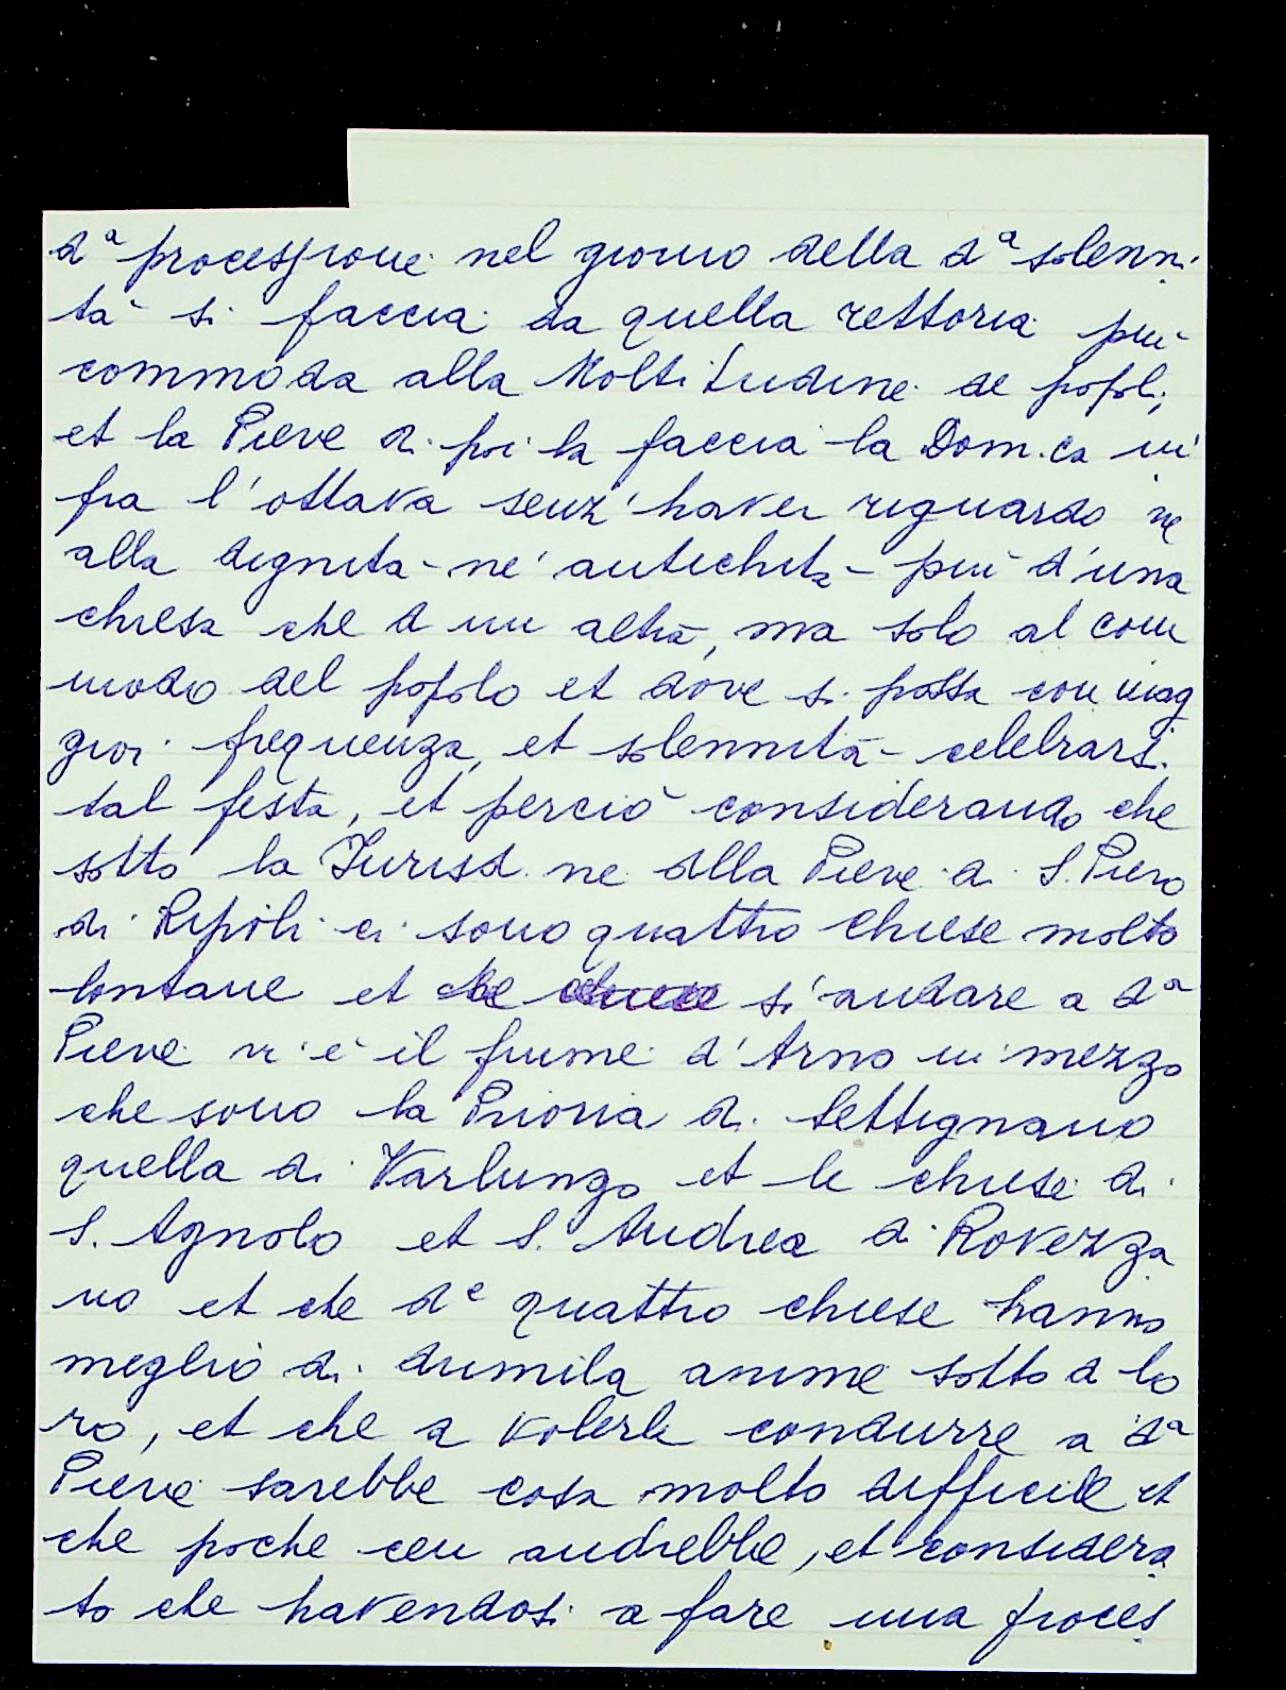 dª processione nel giorno della dª solenni
tà si faccia da quella rettoria più
commoda alla Moltitudine de popoli,
et la Pieve di poi la faccia la Dom.ca in
fra l'ottava senz'haver riguardo ne
alla dignità né antichità più d'una
chiesa che d un altra, ma solo al com
modo del popolo et dove si possa con mag
gior frequenza, et solennità celebrarsi
tal festa, et perciò considerando che
sotto la Jurisd.ne della Pieve di S. Piero
di Ripoli ci sono quattro chiese molto
lontane et che si andare a dª
Pieve vi è il fiume d'Arno in mezzo
che sono la Prioria di Settignano
quella di Varlungo et le chiese di
S. Agnolo et S. Andrea a Rovezza
no et che dᵉ quattro chiese hanno
meglio di dumila anime sotto d lo
ro, et che a volerle condurre a dª
Pieve sarebbe cosa molto difficile et
che poche cen andrebbe, et considera
to che havendosi a fare una proces